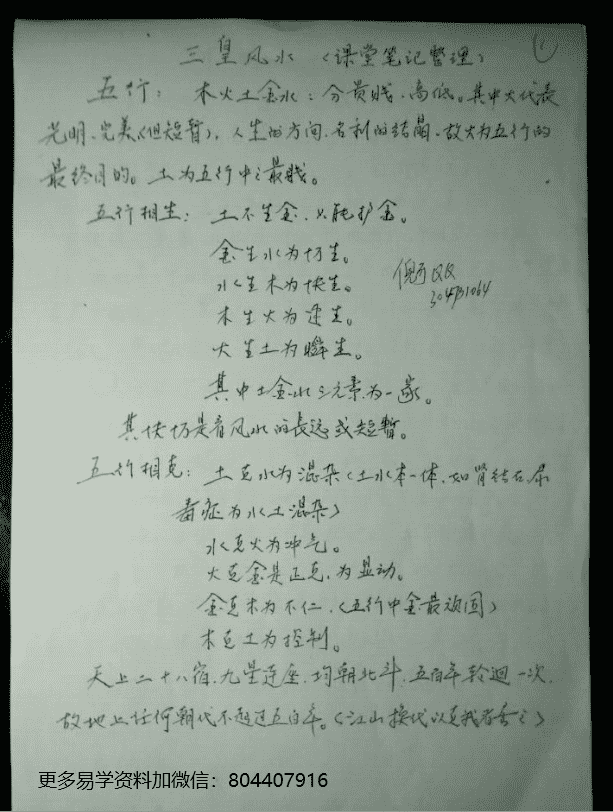 ①
三皇风水（课堂笔记整理）
五行：木火土金水：分贵贱、高低。其中火代表
光明、完美（但短暂），人生的方向、名利的结晶、故火为五行的
最终目的。土为五行中之最贱。
五行相生：土不生金、只能护金。
金生水为切生。
水生木为快生。
木生火为逆生。
火生土为瞬生。
倪 QQ
304731064
其中土金水三元素为一家。
其快切是看风水的长远或短暂。
五行相克：土克水为混杂（土水本一体、如肾结石尿
毒症为水土混杂）
水克火为冲气。
火克金是正克、为显动。
金克木为不仁、（五行中金最顽固）
木克土为控制。
天上二十八宿、九星连座、均朝北斗、五百年轮迴一次、
故地上任何朝代不超过五百年。（江山换代以克我者
更多易学资料加微信：804407916